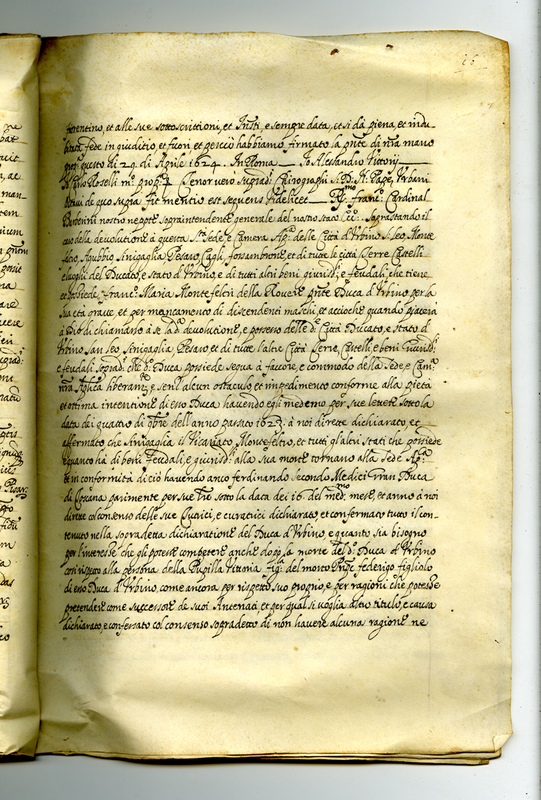 fiorentino, et alle sue sottoscrittioni, et Instri, e sempre data, et si dà piena, et indu-
bitata fede in giuditio, et fuori et per ciò habbiamo firmato la pnte di nra mano
questo dì 29. di Aprile 1624. In Roma — Io Alessandro Vittorij
Io Ciro Roselli mo propa Tenor vero supradi Chirographi S. D. N. Pape Urbani
Octavi de quo supra fit mentio est sequens videlicet — Rmo franco Cardinal
Barberini nostro nepote sopraintendente generale del nostro stato Ecco. Soprastando il
caso della devolutione à questa Sta Sede, e Camera Apca delle Città d'Urbino S. Leo, Monte
feltro, Agubbio Sinigaglia Pesaro Cagli, fossombrone et di tutte le città Terre Castelli
e luoghi del Ducato, e stato d'Urbino e di tutti altri beni giurisdli, e feudali, che tiene
et possiede franco Maria Montefeltri della Rovere pnte Duca d'Urbino per la
sua età grave, et per mancamento di descendenti maschi, et acciochè quando piacerà
à Dio di chiamarlo à se la da devolutione, e possesso delle de Città Ducato, e stato d'
Urbino San leo Sinigaglia Pesaro et di tutte l'altre Città Terre, Castelli, e beni giurisdli
e feudali sopradi che do Duca possiede segua à favore, e commodo della Sede, e Camra
nra Aplica liberamte, e senz'alcun ostacolo, et impedimento conforme alla pietà
et ottima intentione di esso Duca havendo egli medemo per sue lettere sotto la
data dei quattro di 9bre dell'anno passato 1623. à noi dirette dichiarato, et
affermato che Sinigaglia il Vicariato Montefeltro, et tutti gl'altri stati che possiede
e quanto hà di beni feudali, e giurisdli alla sua morte tornano alla Sede Apca
et in conformità di ciò havendo anco ferdinando Secondo Medici Gran Duca
di Toscana parimente per sue lre sotto la data dei 16. del medmo mese, et anno à noi
dirette col consenso delle sue Tutrici, e curatrici dichiarato, et confermato tutto il con-
tenuto nella sopradetta dichiaratione del Duca d'Urbino, e quanto sia bisogno
per l'interesse che gli potesse competere anche doppo la morte del do Duca d'Urbino
con rispetto alla persona della Pupilla Vittoria figla del morto Prnpe federigo figliolo
di esso Duca d'Urbino, come ancora per rispetto suo proprio, e per ragioni che potesse
pretendere come successore de suoi Antenati, et per qual si voglia altro titulo, e causa
dichiarato, e confessato col consenso sopradetto di non havere alcuna ragione ne